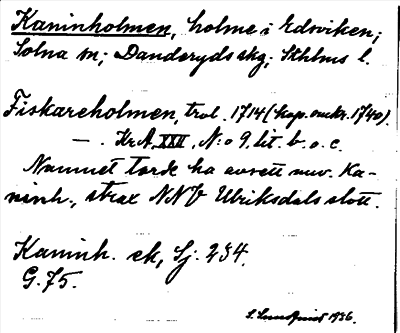 Kaninholmen, holme i Edsviken;
Solna sn; Danderyds skg; Sthlms l.
Fiskareholmen, trol. 1714 (kop. omkr. 1740).
—. Kr A, XXII, N:o 9, lit. b. o. c.
Namnet torde ha avsett nuv. Ka-
ninh., strax NNV Ulriksdals slott.
Kaninh. ek, Sj. 234.
G. 75.
S. Lundquist 1936.